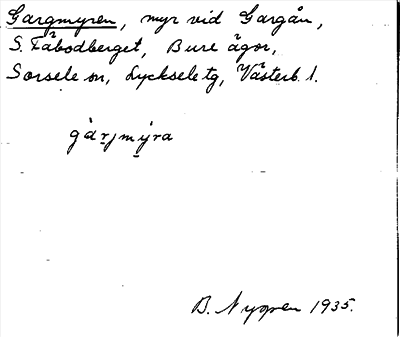 Gargmyren, myr vid Gargån,
S. Fäbodberget, Bure ägor,
Sorsele sn, Lycksele tg, Västerb. l.
gàrjmýra
B. Nygren 1935.